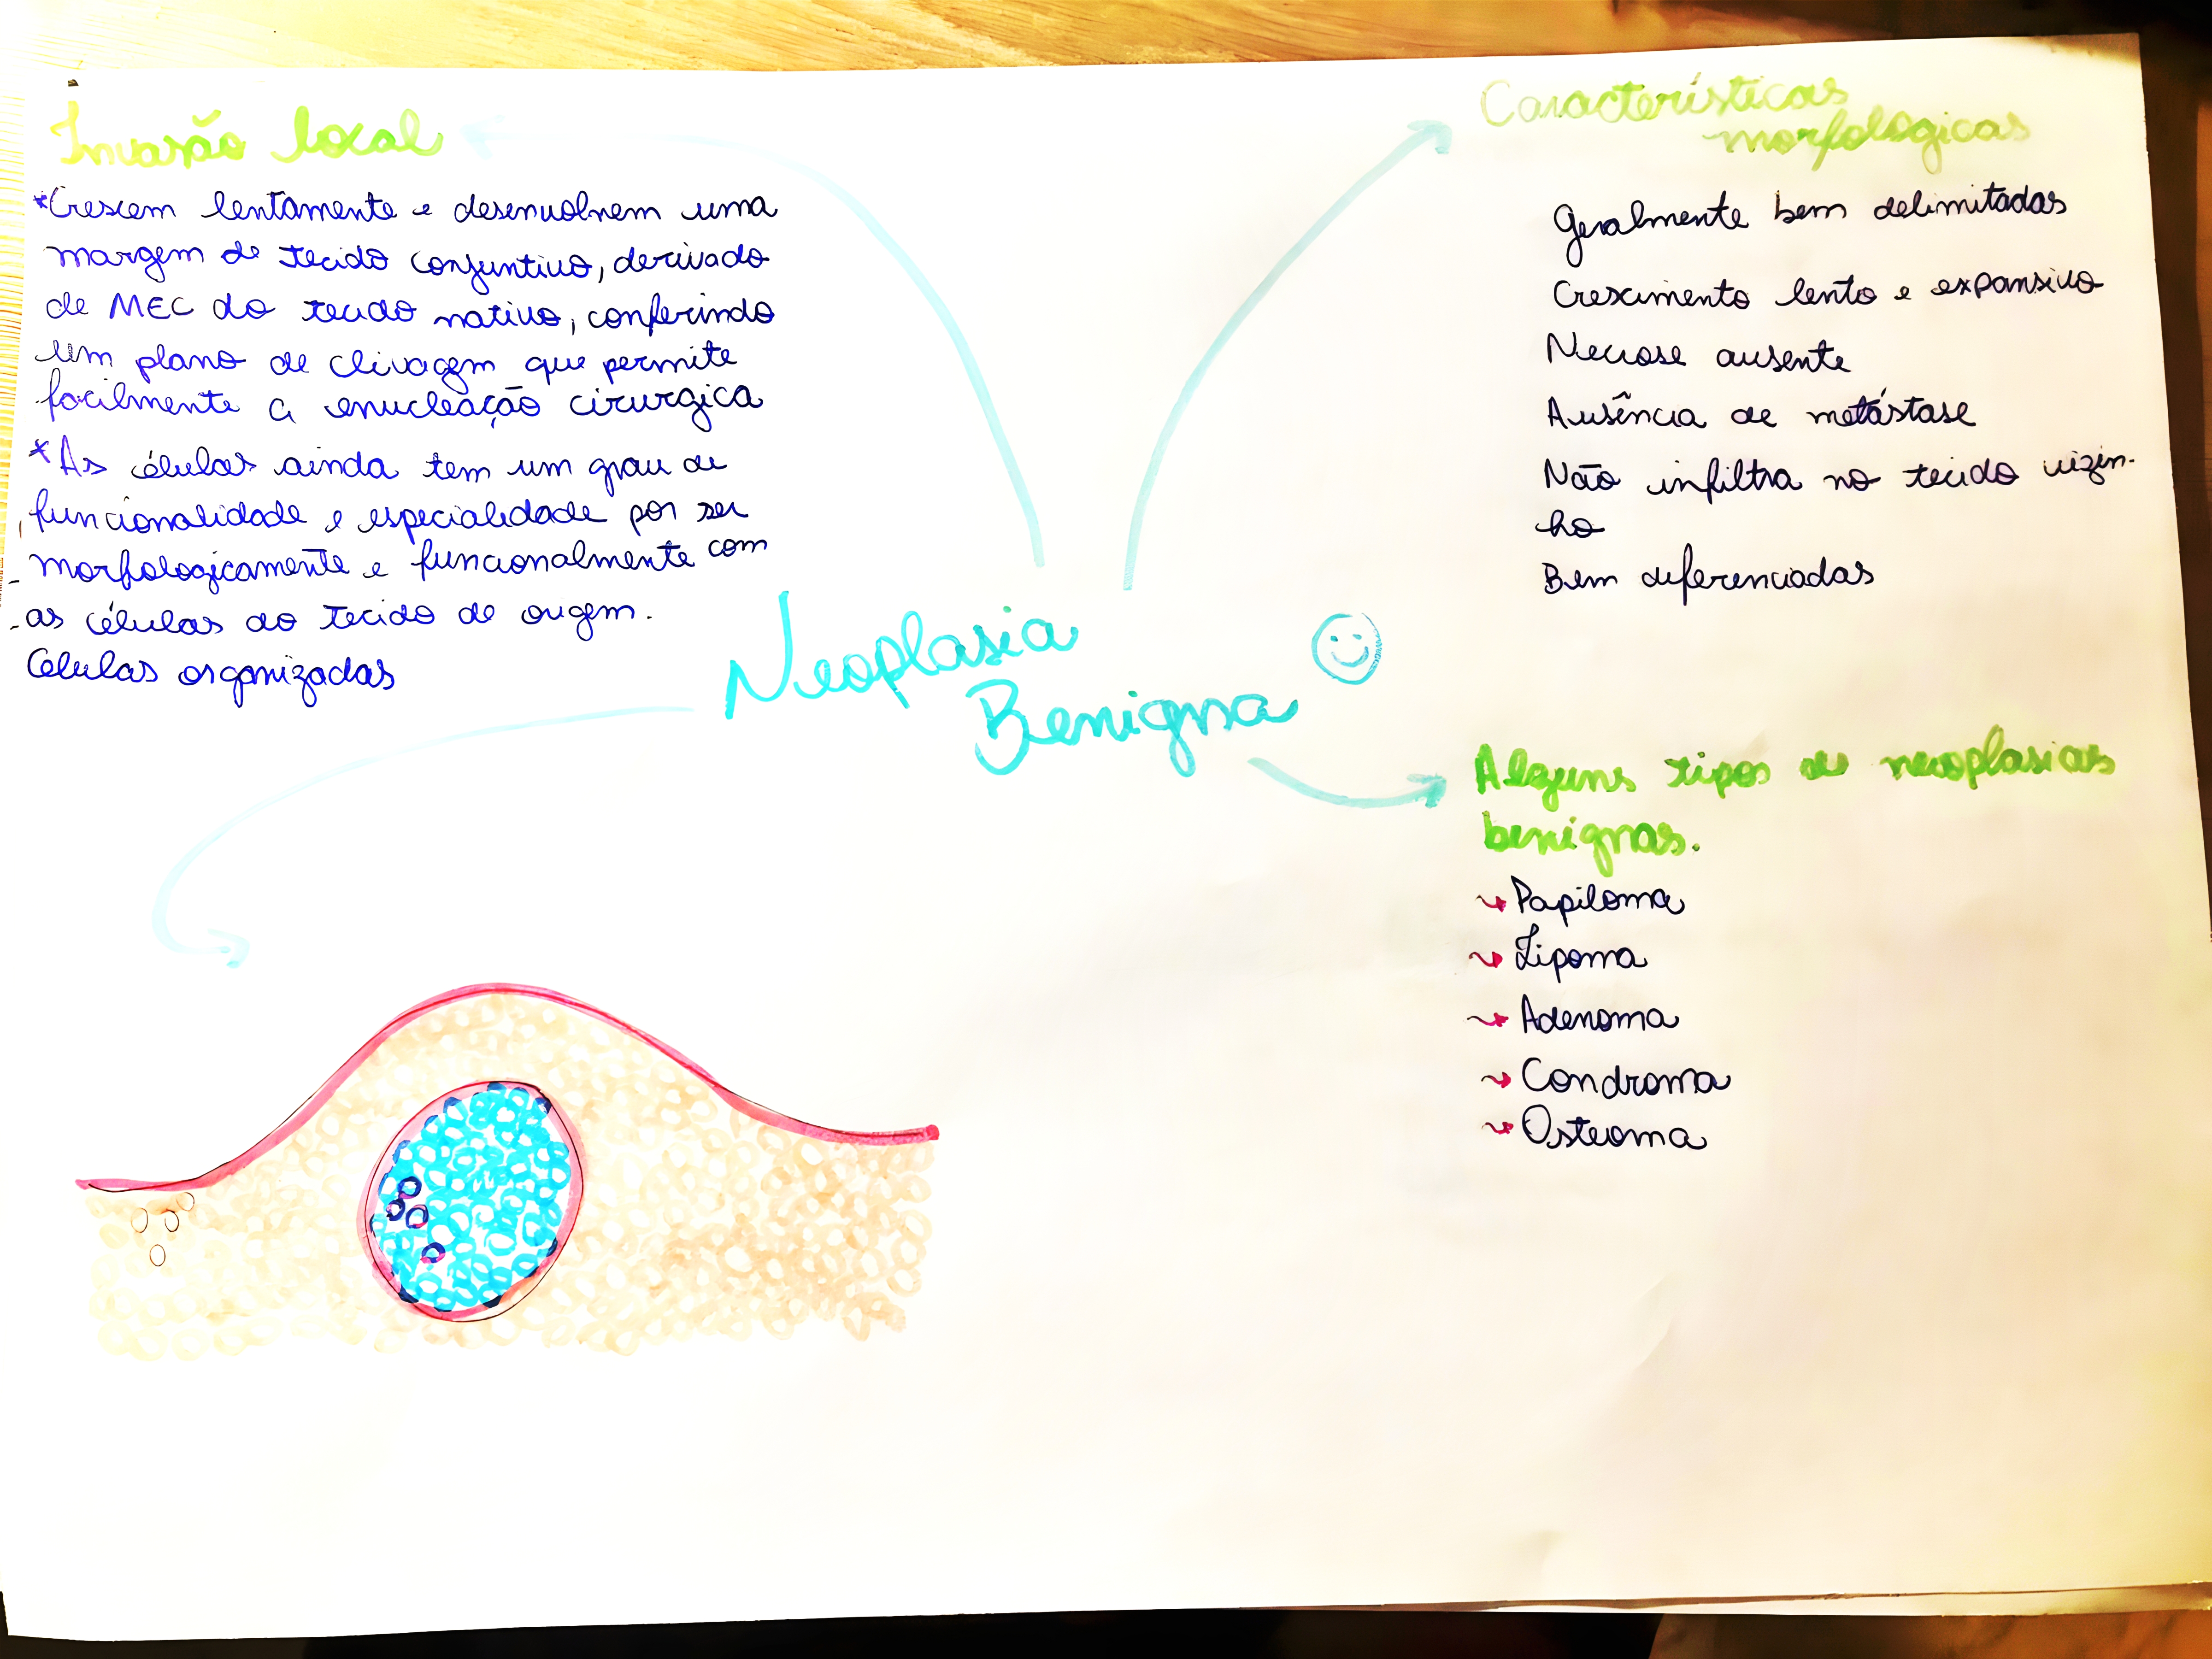 Invasão local
*Crescem lentamente e desenvolvem uma
margem de tecido conjuntivo, derivado
de MEC do tecido nativo, conferindo
um plano de clivagem que permite
facilmente a enucleação cirurgica
*As células ainda tem um grau de
funcionalidade e especialidade por ser
morfologicamente e funcionalmente com
as células do tecido de origem.
Celulas organizadas
Neoplasia
Benigna
Características
morfologicas
Geralmente bem delimitadas
Crescimento lento e expansivo
Necrose ausente
Ausência de metástase
Não infiltra no tecido vizin-
ho
Bem diferenciadas
Alguns tipos de neoplasias
benignas.
Papiloma
Lipoma
Adenoma
Condroma
Osteoma